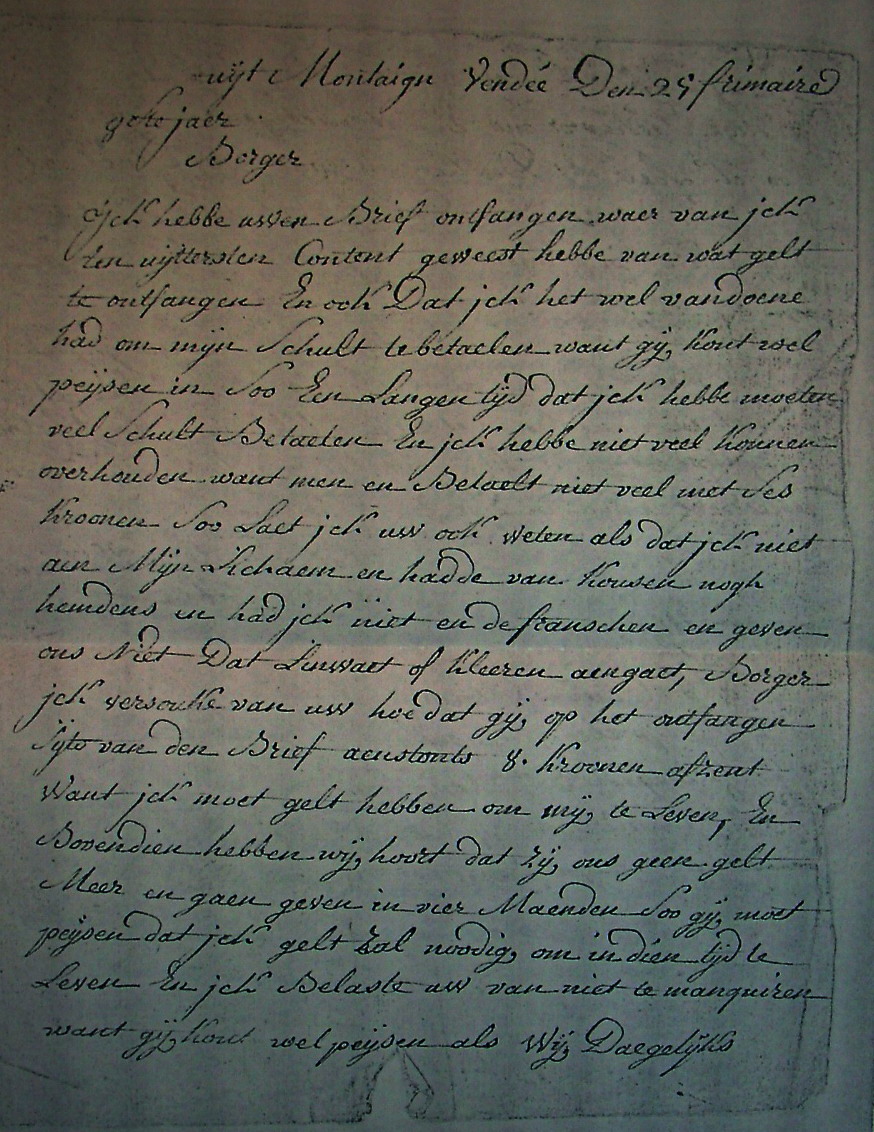 uijt Montaign Vendeé Den 25 frimaire
jaer
Borger
Jck hebbe uwen Brief ontfangen waer van jck
ten uijttersten Content geweest hebbe van wat gelt
te ontfangen En ook Dat jck het wel vandoene
had om mijn Schult te betaelen want gij kont wel
peijsen in Soo Een Langen tijd dat jck hebbe moeten
veel Schult Betaelen En jck hebbe niet veel konnen
overhouden want men en Betaelt niet veel met Ses
kroonen Soo Laet jck uw ook weten als dat jck niet
aen Mijn Lichaem en hadde van kousen nogh
hemdens en had jck niet en de franschen en geven
ons Niet Dat Linwaet of kleeren aengaet, Borger
jck versouke van uw hoe dat gij op het ontfangen
van den Brief aenstonts 8. kroonen afzent
Want jck moet gelt hebben om mij te Leven, En
Bovendien hebben wij hoort dat zij ons geen gelt
Meer en gaen geven in vier Maenden Soo gij moet
peijsen dat jck gelt zal noodig om in dien tijd te
Leven En jck Belaste uw van niet te manquiren
want gij kont wel peijsen als Wij Daegelijks